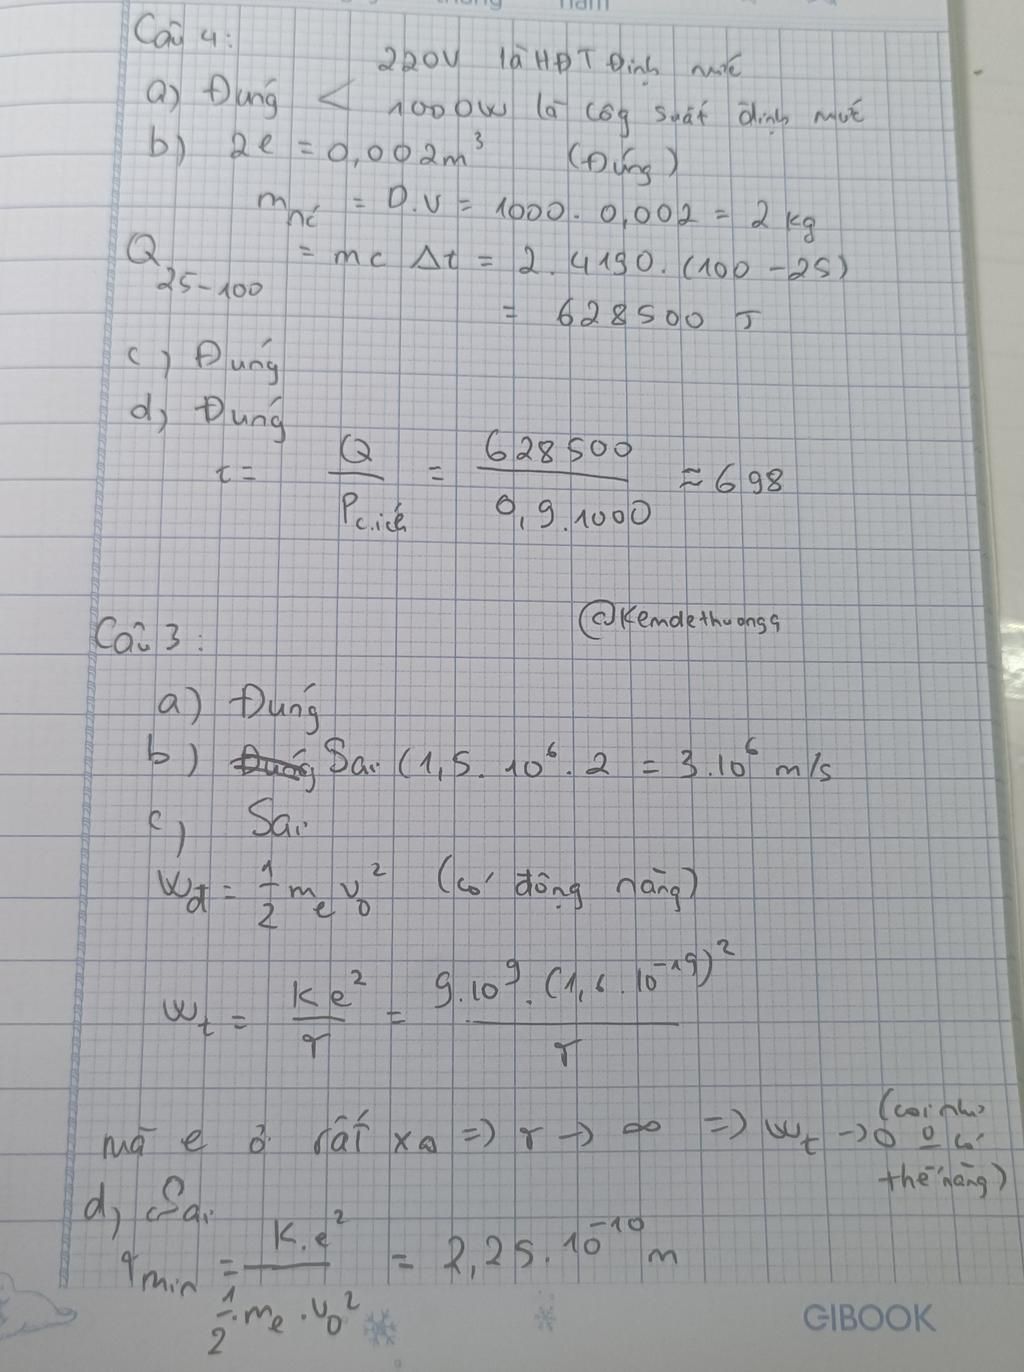 Câu 4:
220V là HĐT Định mức
a) Đúng <
1000W là côg suất định mức
b) 2l = 0,002m³ (Đúng)
m nc = D.V = 1000. 0,002 = 2 kg
Q 25-100 = mc Δt = 2. 4190. (100 - 25)
= 628500 J
c) Đúng
d) Đúng
t = Q / P c.ích = 628500 / 0,9.1000 ≈ 698
@Kemdethuongg
Câu 3:
a) Đúng
b) Sai (1,5. 10⁶. 2 = 3.10⁶ m/s
c) Sai
Wđ = 1/2 mₑ v₀² (có động năng)
Wt = K e² / r = 9.10⁹. (1,6. 10⁻¹⁹)² / r
mà e ở rất xa => r -> ∞ => Wt -> 0 (coi như 0 có thế năng)
d) Sai
r min = K.e² / 1/2.mₑ.v₀² = 2,25. 10⁻¹⁰ m
GIBOOK